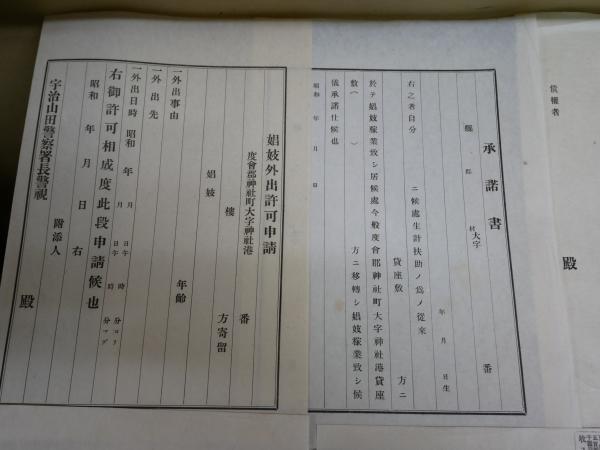 債権者
殿
承諾書
縣 郡 村 大字 番
年 月 日生
右之者自分 ニ候處生計扶助ノ爲メ從来
貸座敷 方ニ
於テ娼妓稼業致シ居候處今般度會郡神社町大字神社港貸座
敷( ) 方ニ移轉シ娼妓稼業致シ候
儀承諾仕候也
昭和 年 月 日
娼妓外出許可申請
度會郡神社町大字神社港
番
樓 方寄留
娼妓
年齡
一外出事由
一外出先
一外出日時 昭和 年 月 日午 時 分ヨリ
月 日午 時 分マデ
右御許可相成度此段申請候也
昭和 年 月 日 右
附添人
宇治山田警察署長警視 殿